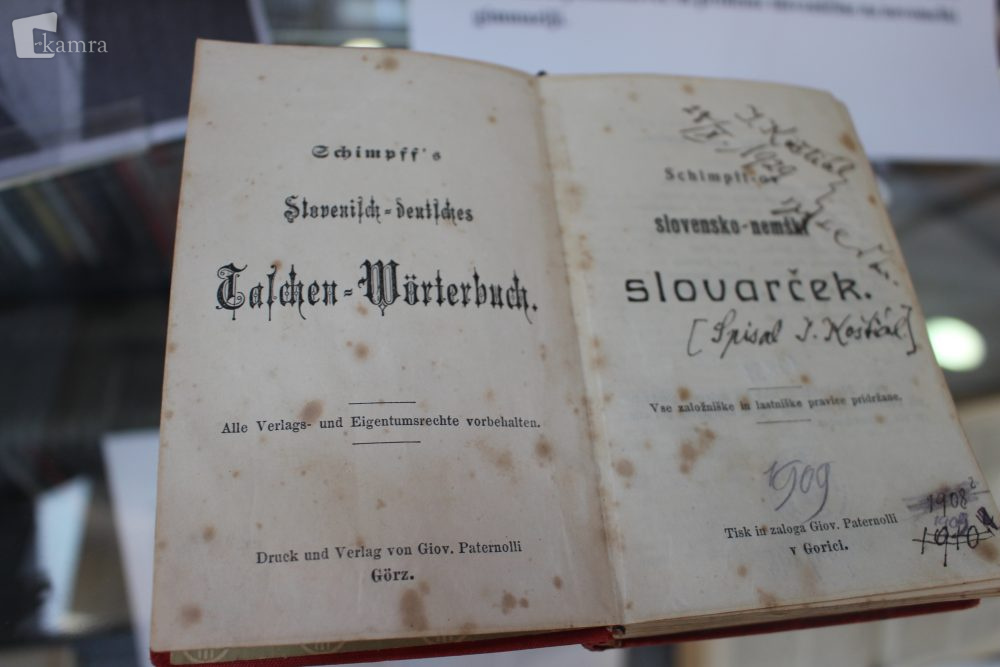 kamra
gimnaziji.
Schimpff's
Slovenisch-deutsches
Taschen-Wörterbuch.
Alle Verlags- und Eigentumsrechte vorbehalten.
Druck und Verlag von Giov. Paternolli
Görz.
J. Koštiál
1929
Schimpff-ov
slovensko-nemški
slovarček.
[Spisal I. Koštiál.]
Vse založniške in lastniške pravice pridržane.
1909
1908?
1910
Tisk in zaloga Giov. Paternolli
v Gorici.